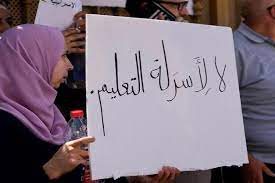 لا لِأسرلة التعليم.